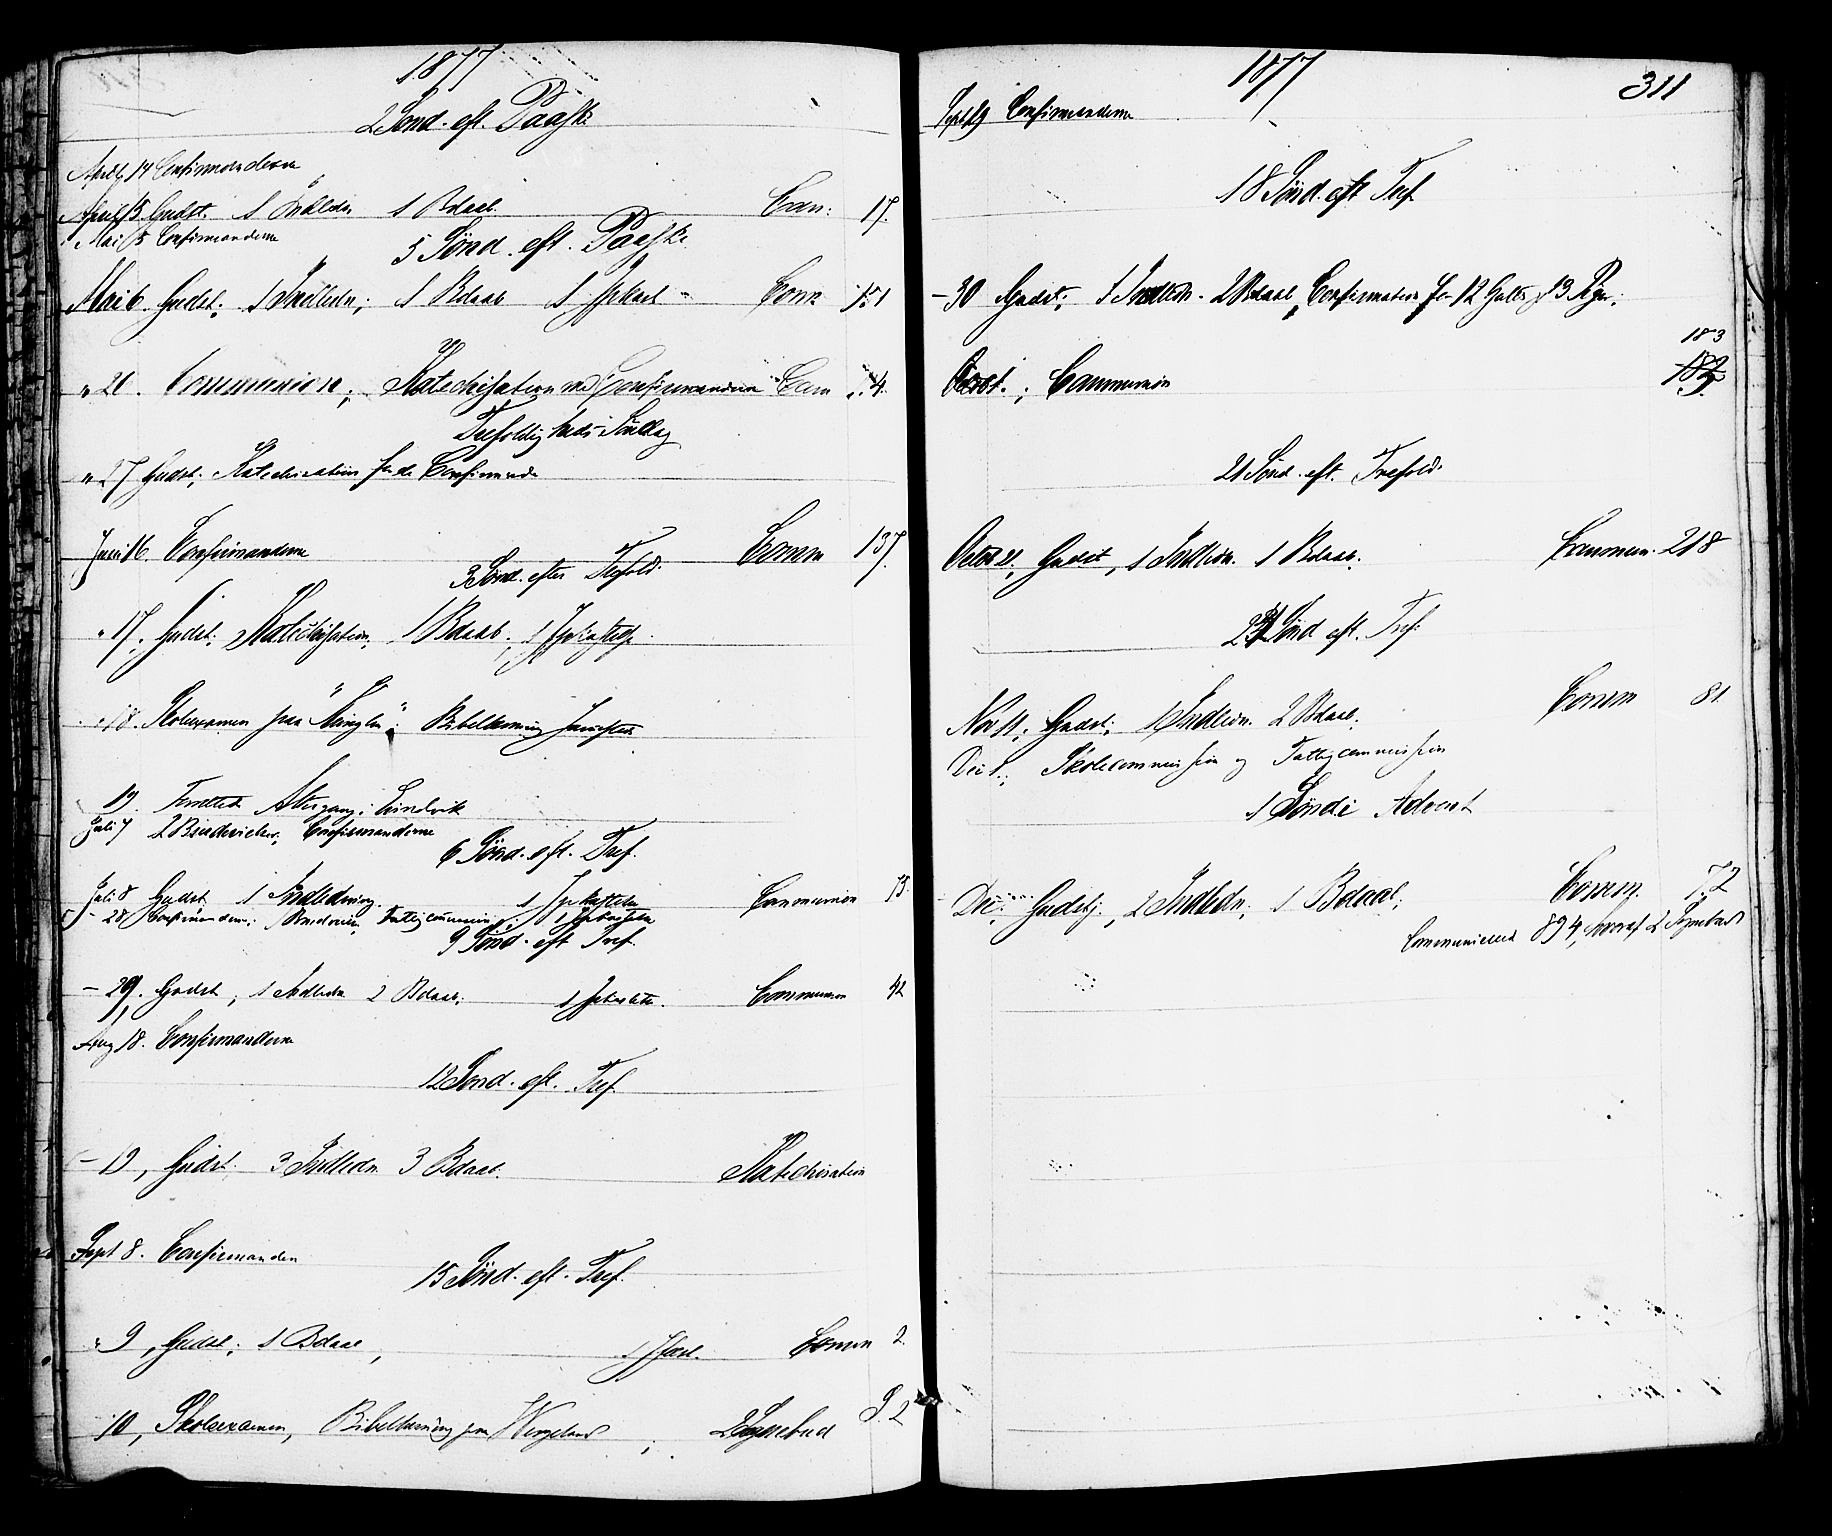 1877
2 Sønd. eft. Paaske
April 14 Confirmanderne
April 15 Gudst. 1 Indledn 1 Bdaab. Com: 17.
Mai 5 Confirmanderne
5 Sønd. eft. Paaske
Mai 6. Gudst.; 1 Indledn; 1 Bdaab Com 151
" 20. Communion; Katechisation med Confirmanderne Com 4.
Trefoldigheds Søndag
" 27 Gudst; Katechisation for de Confirmerede
Juni 16. Confirmanderne Comm 137.
3 Sønd. efter Trefold.
" 17. Gudst; Katechisation, 1 Bdaab.,
" 18. Skoleexamen paa
19.
Juli 7 Confirmanderne
6 Sønd. eft. Tref.
Juli 8 Gudst 1 Indledning. Communion 13
- 28 Confirmanderne; Fattigcommission
9 Sønd. eft Tref.
- 29. Gudst, 1 Indledn 2 Bdaab; Communion 42
Aug 18. Confirmanderne
12 Sønd. eft. Tref.
- 19, Gudst. 3 Indledn 3 Bdaab. Katechisation
Sept 8. Confirmanden
15 Sønd. eft. Tref.
" 9, Gudst; 1 Bdaab, Comm 2.
10, Skoleexamen, Bibellæsning paa 2 Sygebud
1877 311
Sept 29 Confirmanderne
18 Sønd. eft Tref
- 30 Gudst; 1 Indledn. 2 Bdaab, Confirmation for 12 Gutter og 13 Piger;
183
Octob 1.; Communion
21 Sønd. eft. Trefold.
Octob 21, Gudst, 1 Indledn. 1 Bdaab. Commun. 218
24 Sønd eft. Tref.
Nov 11. Gudst; 1 Indledn. 2 Bdaab. Comm 81
Dec 1.; Skolecommission og Fattigcommission
1 Sønd. i Advent
Dec. Gudstj., 2 Indledn; 1 Bdaab; Comm. 72
Communicered 894, hvoraf 2 Sygebud